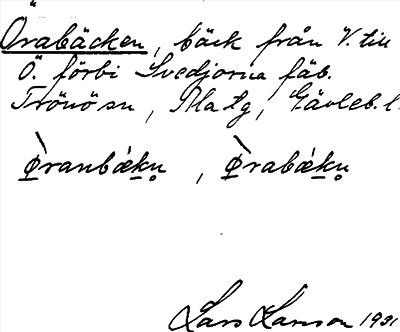 Örabäcken, bäck från V. till
Ö. förbi Svedjorna fäb.
Trönö sn, Plats, Gävleb. l.
Øranbækn, Ørabækn
Lars Larsson 1931